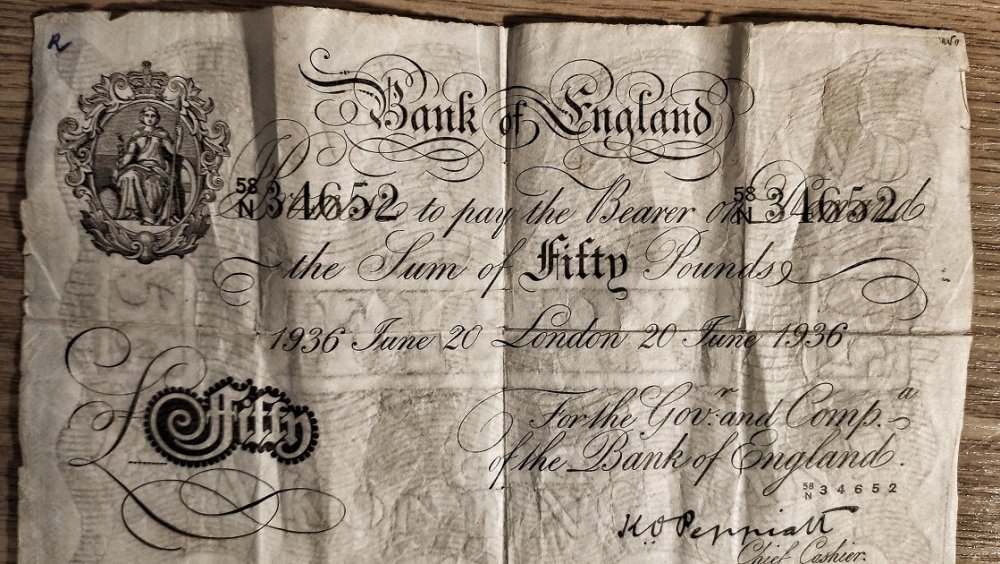 R
Bank of England
58
N 34652 to pay the Bearer on 58
N 34652
the Sum of Fifty Pounds
1936 June 20 London 20 June 1936
£ Fifty
For the Gov.r and Comp.a
of the Bank of England.
58
N 34652
K.O. Peppiatt
Chief Cashier.